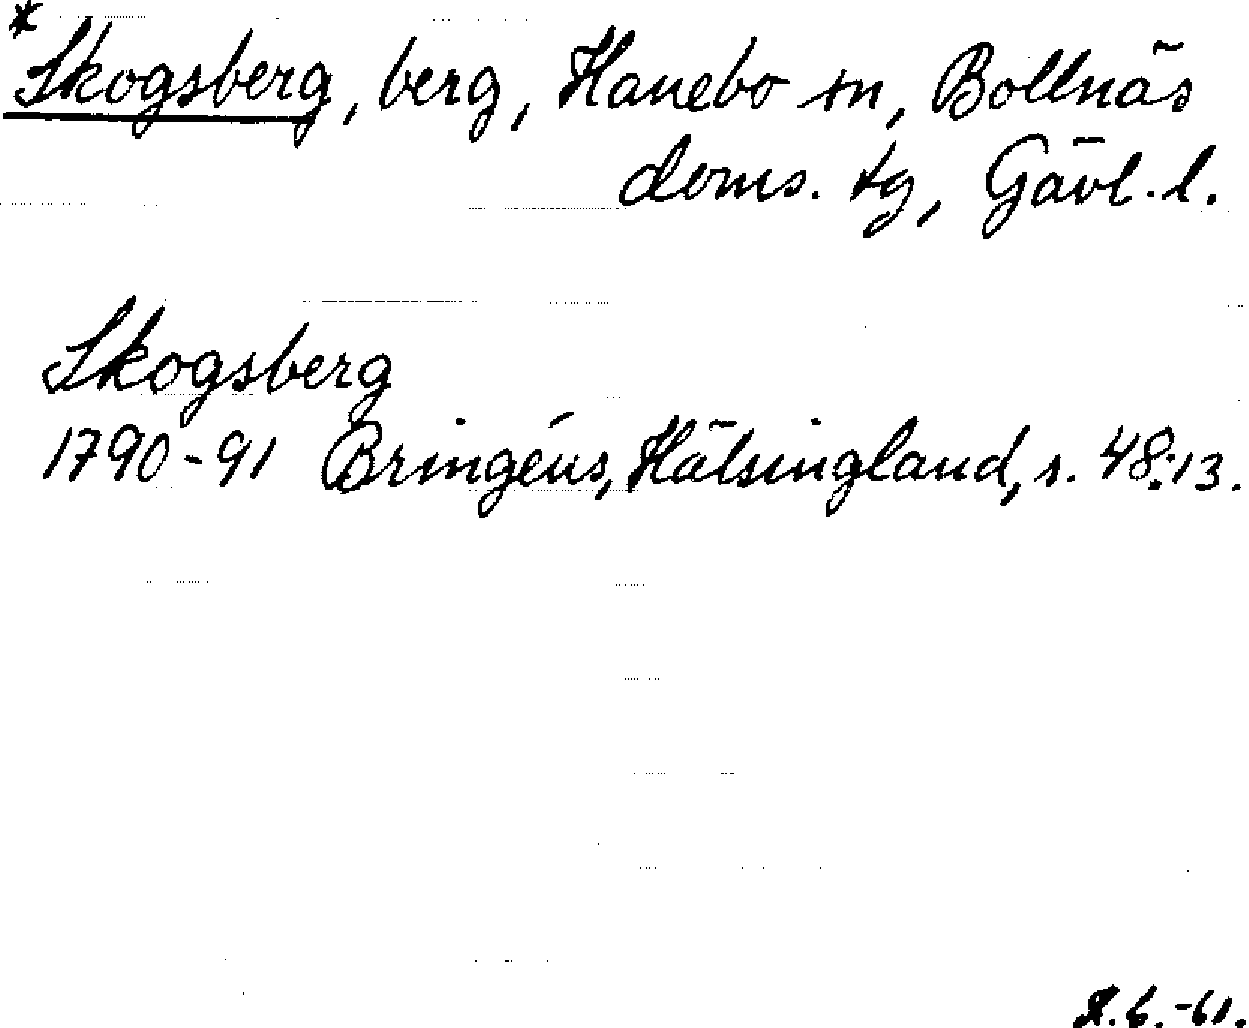 *Skogsberg, berg, Hanebo sn, Bollnäs
doms. tg, Gävl. l.
Skogsberg
1790-91 Bringéus, Hälsingland, s. 48:13.
6.-61.